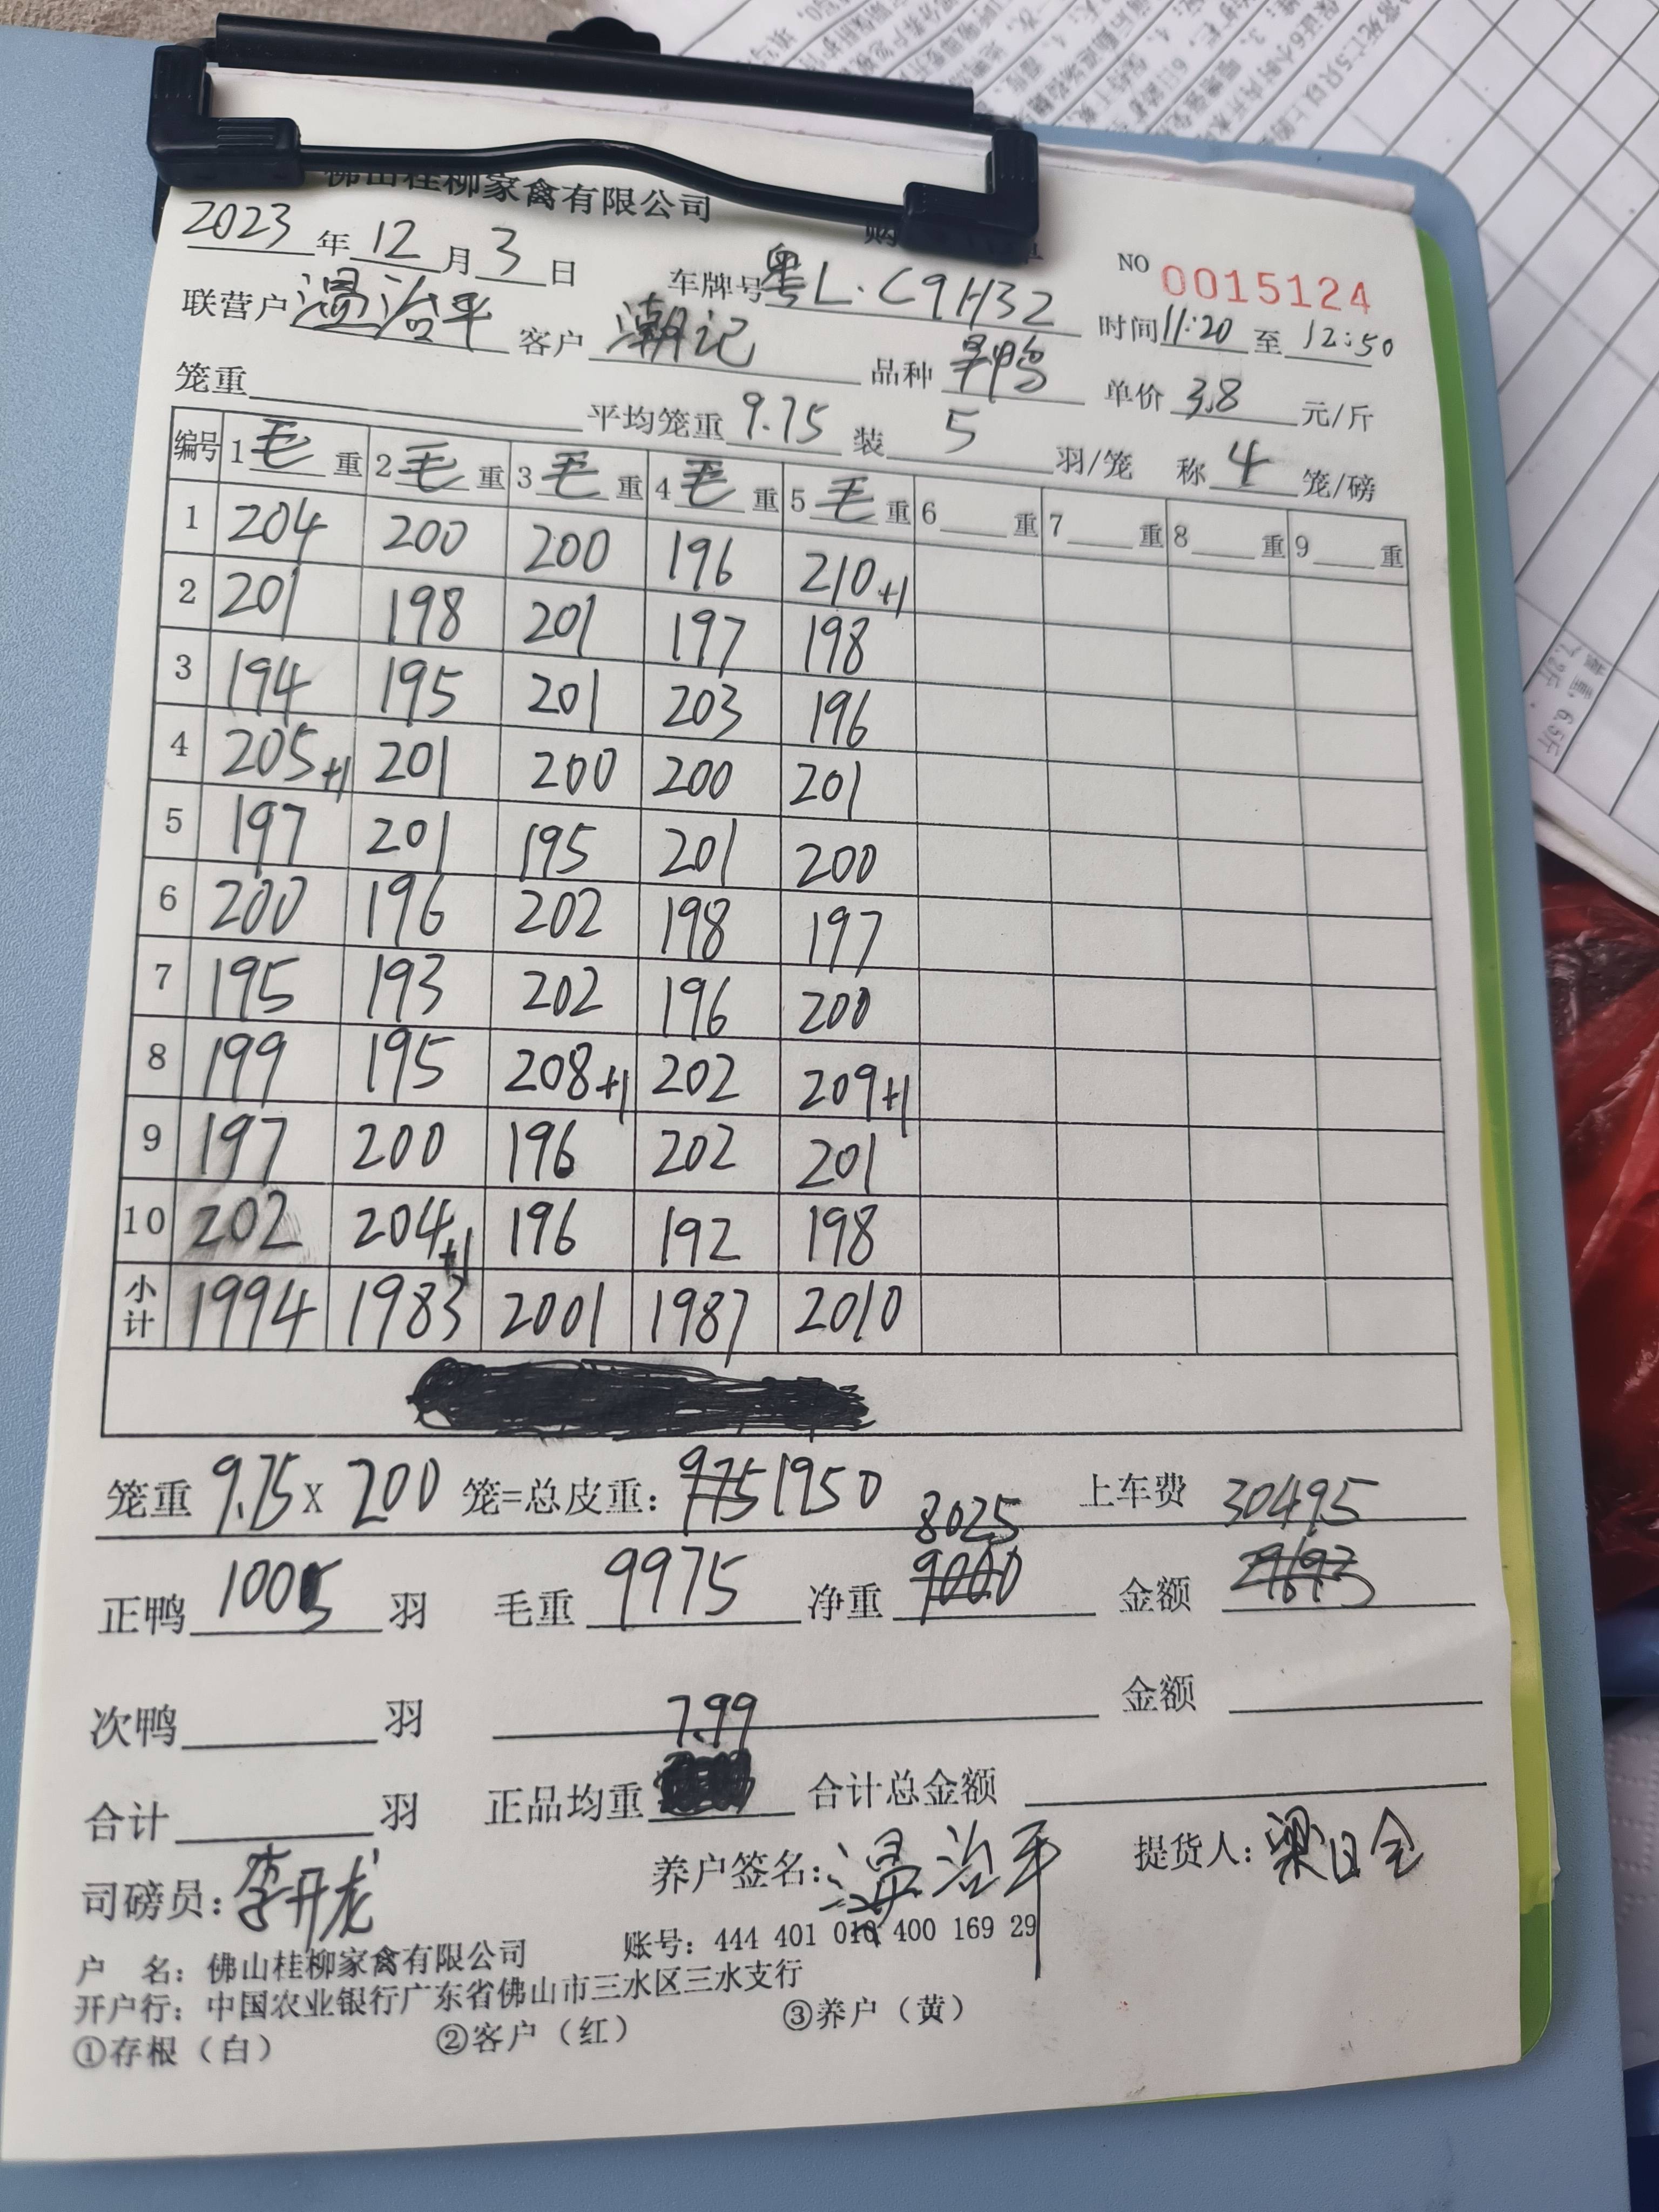 佛山桂柳家禽有限公司
2023年12月3日 车牌号粤L·C9H32 NO 0015124
联营户温治平 客户潮记 品种 时间11:20至12:50
笼重 平均笼重9.75 装5羽/笼 单价3.8元/斤
称4笼/磅
编号 1毛重 2毛重 3毛重 4毛重 5毛重 6重 7重 8重 9重
1 204 200 200 196 210+1
2 201 198 201 197 198
3 194 195 201 203 196
4 205+1 201 200 200 201
5 197 201 195 201 200
6 200 196 202 198 197
7 195 193 202 196 200
8 199 195 208+1 202 209+1
9 197 200 196 202 201
10 202 204+1 196 192 198
小计 1994 1983 2001 1987 2010
笼重9.75X200笼=总皮重：975 1950 上车费 30495
8025
正鸭1005羽 毛重9975 净重9000 金额
次鸭 羽 7.99 金额
合计 羽 正品均重 合计总金额
司磅员：李开龙 养户签名：温治平 提货人：梁日全
户 名：佛山桂柳家禽有限公司 账号：444 401 010 400 169 29
开户行：中国农业银行广东省佛山市三水区三水支行
①存根（白） ②客户（红） ③养户（黄）